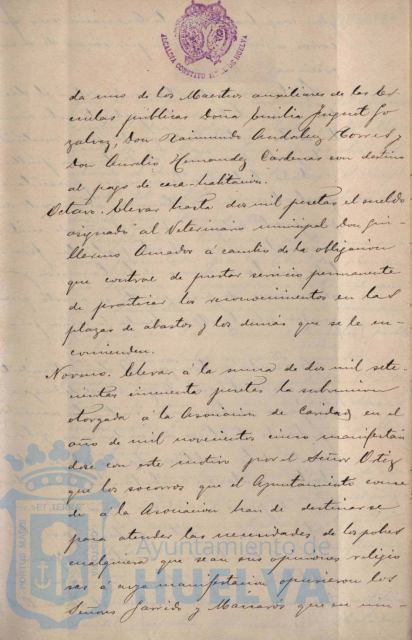 ALCALDIA CONSTITUCIONAL DE HUELVA
da uno de los Maestros auxiliares de las Es-
cuelas públicas Doña Emilia
zalvez, Don Raimundo Andaluz Torres y
Don Aurelio Hernandez Cárdenas con destino
al pago de casa-habitacion.
Octavo. Elevar hasta dos mil pesetas el sueldo
asignado al Veterinario municipal Don Gui-
llermo Amador á cambio de la obligacion
que contrae de prestar servicio permanente
de practicar los reconocimientos en las
plazas de abastos y los demás que se le en-
comienden.
Noveno. Elevar á la suma de dos mil sete-
cientas cincuenta pesetas la subvencion
otorgada á la Asociacion de Caridad en el
año de mil novecientos cinco manifestan
dose con este motivo por el Señor Ortiz
que los socorros que el Ayuntamiento conce
de á la Asociacion han de destinarse
para atender las necesidades de los pobres
cualquiera que sean sus opiniones religio
sas á cuya manifestacion opusieron los
Señores Garrido y Marcaros que en
Ayuntamiento de
HUELVA